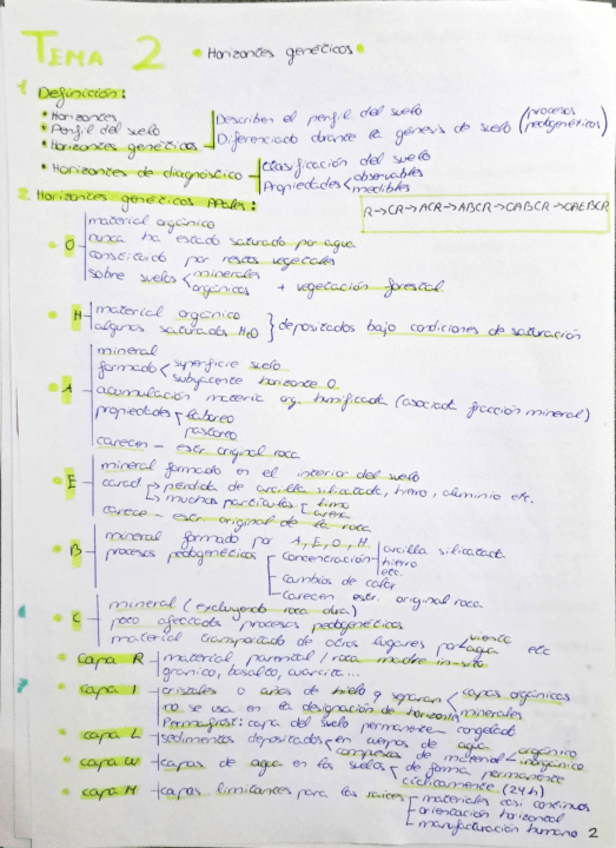 TEMA 2 • Horizontes genéticos •
1. Definición:
• Horizontes
• Perfil del suelo
• Horizontes genéticos
Describen el perfil del suelo
Diferenciado durante la génesis de suelo (procesos pedogenéticos)
• Horizontes de diagnóstico
Clasificación del suelo
Propiedades < observables
medibles
2. Horizontes genéticos ppales:
R→CR→ACR→ABCR→OABCR→OAEBCR
• O
material orgánico
nunca ha estado saturado por agua
constituido por restos vegetales
sobre suelos < minerales
orgánicos + vegetación forestal
• H
material orgánico
algunos saturados H2O } depositados bajo condiciones de saturación
• A
mineral
formado < superficie suelo
subyacente horizonte O
acumulación materia org. humificada (asociada fracción mineral)
propiedades laboreo
pastoreo
carecen – estr original roca
• E
mineral formado en el interior del suelo
caract → pérdida de arcilla silicatada, hierro, aluminio etc.
→ muchas partículas [ limo
arena
carece – estr original de la roca
• B
mineral formado por A, E, O, H
procesos pedogenéticos
concentración arcilla silicatada
hierro
etc.
cambios de color
carecen estr. original roca
• C
mineral (excluyendo roca dura)
poco afectada procesos pedogenéticos
material transportado de otros lugares por viento etc
agua
• Capa R material parental / roca madre in-situ
granito, basalto, cuarcita...
• Capa I cristales o de hielo q separan < capas orgánicas
no se usa en la designación de horizonte minerales
Permafrost: capa del suelo permanente – congelado
• Capa L sedimentos depositados < en cuerpos de agua
compuestos de material < orgánico
inorgánico
• Capa W capas de agua en los suelos < de forma permanente
cíclicamente (24h)
• Capa M capas limitantes para las raíces materiales casi continuos
orientación horizontal
manufacturación humano
2